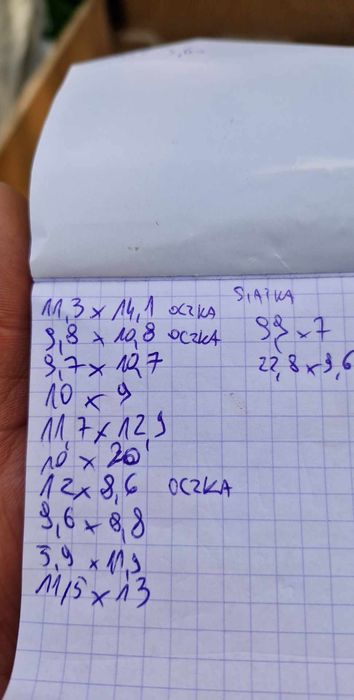 SIATKA
11,3 x 14,1 OCZKA
9,8 x 10,8 OCZKA 99 x 7
9,7 x 10,7 22,8 x 9,6
10 x 9
11,7 x 12,9
10 x 20
12 x 8,6 OCZKA
9,6 x 8,8
3,9 x 11,9
11,5 x 13